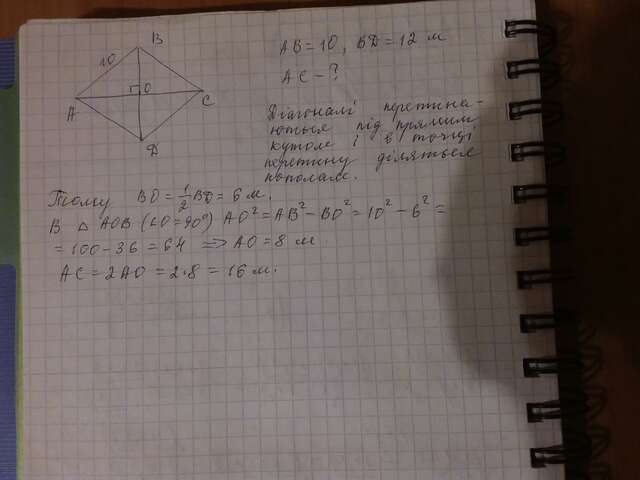 B
10
A
O
C
D
AB = 10, BD = 12 м
AC - ?
Діагоналі перетина-
ються під прямим
кутом і в точці
перетину діляться
пополам.
Тому BO = 1/2 BD = 6 м.
В △ AOB (∠O = 90°) AO² = AB² - BO² = 10² - 6² =
= 100 - 36 = 64 ⇒ AO = 8 м
AC = 2AO = 2·8 = 16 м.